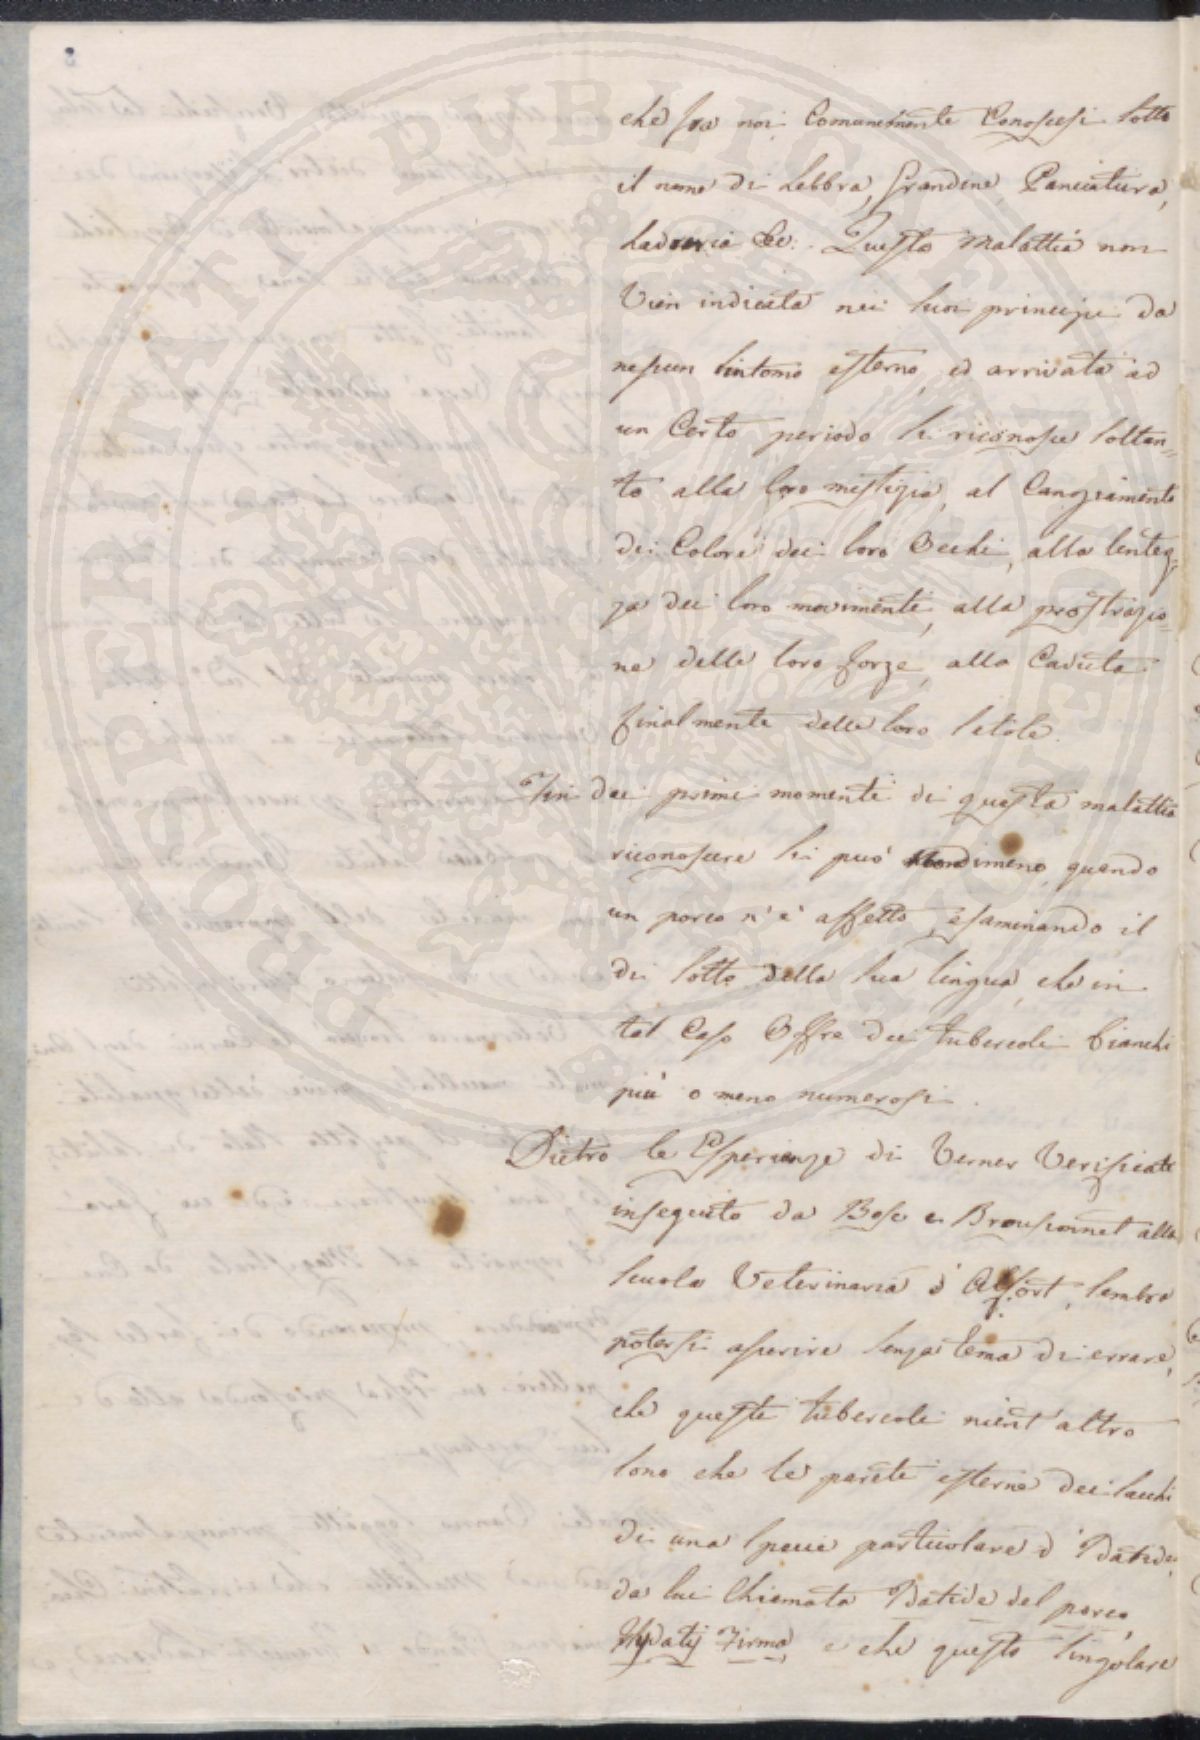 che fra noi Comunemente Conoscesi sotto
il nome di Lebbra, Grandine, Paniciatura,
Ladreria &c: Questa malattia non
Vien indicata nei suoi principii da
nessun sintomo esterno, ed arrivata ad
un Certo periodo si riconosce soltan=
to alla loro mestizia, al Cangiamento
dei Colore dei loro Occhi, alla lentez,
za dei loro movimenti, alla prostrazio=
ne delle loro forze, alla Caduta
finalmente delle loro setole.
Fin dai primi momenti di questa malattia
riconoscere si può nondimeno, quando
un porco n'è affetto, esaminando il
di sotto della sua lingua, che in
tal Caso Offre dei tubercoli bianchi
più o meno numerosi.
Dietro le Esperienze di Verner Verificate
inseguito da Bosc e Brousonnet alla
scuola Veterinaria d'Alfort, sembra
potersi asserire senza tema di errare,
che questi tubercoli nient'altro
sono che le pareti esterne dei sacchi
di una specie particolare d'Idatide,
da lui Chiamata Idatide del porco,
Hydatij Firma, e che questo singolare
PROSPERITATI PUBLICAE